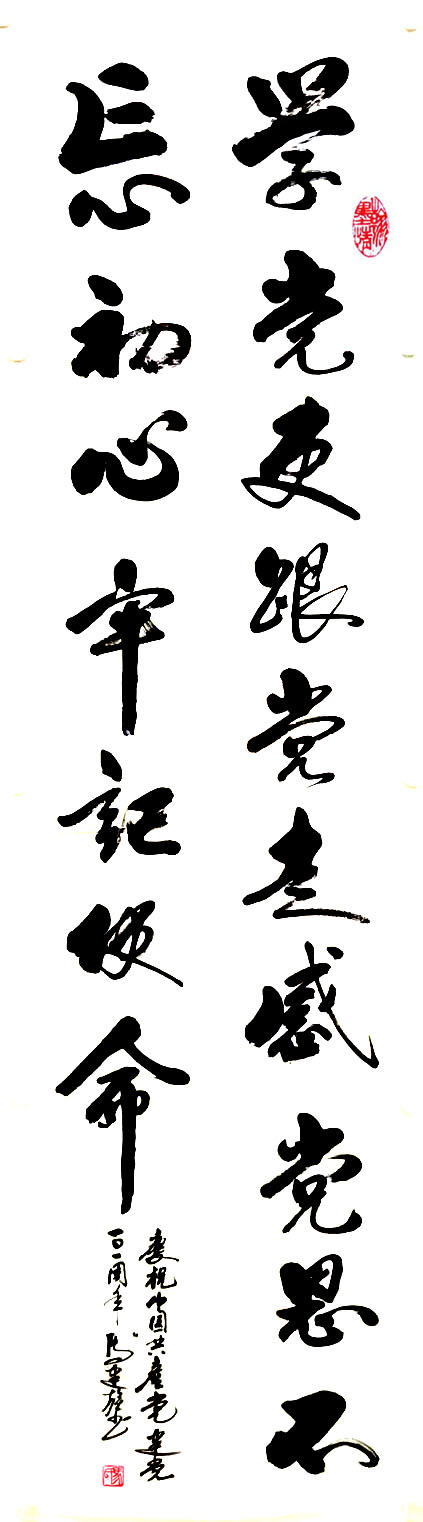 学党史跟党走感党恩不
忘初心牢記使命
慶祝中国共產党建党
百一周年